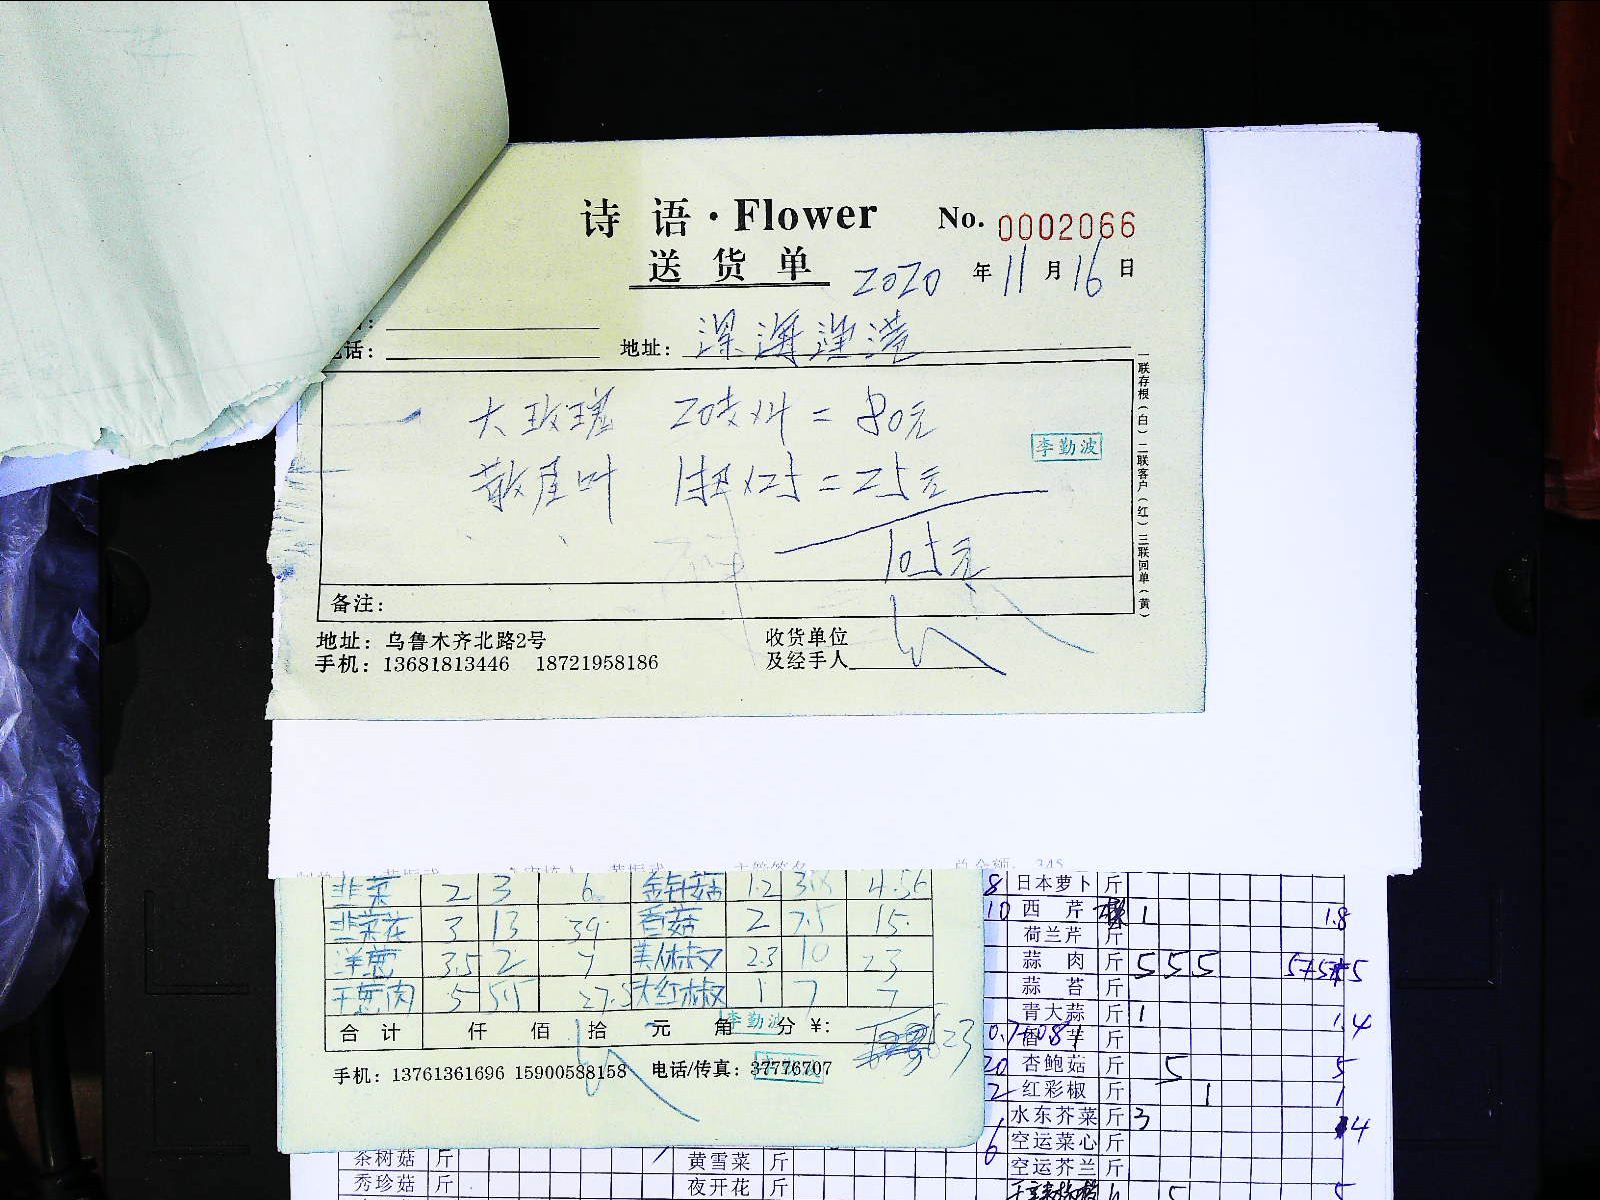 诗 语 · Flower No. 0002066
送 货 单 2020 年 11 月 16 日
话:
地址: 深海渔港
大玫瑰 20支×4 = 80元
李勤波
散尾叶 1扎×25 = 25元
105元
备注:
一联存根(白) 二联客户(红) 三联回单(黄)
地址: 乌鲁木齐北路2号 收货单位
手机: 13681813446 18721958186 及经手人
韭菜 2 3 6 金针菇 1.2 3.8 4.56
韭菜花 3 13 39 香菇 2 7.5 15
洋葱 3.5 2 7 美人椒 2.3 10 23
干葱肉 5 5.5 27.5 大红椒 1 7 7
合 计 仟 佰 拾 元 角 分 ¥: 623
李勤波
手机: 13761361696 15900588158 电话/传真: 37776707
8 日本萝卜 斤
10 西 芹 1 1.8
荷兰芹 斤
蒜 肉 斤 5 5 5 5+5+5
蒜 苔 斤
青大蒜 斤 1 1.4
香 芋 斤
20 杏鲍菇 斤 5 5
2 红彩椒 斤 1 1
水东芥菜 斤 3 4
6 空运菜心 斤
空运芥兰 斤
茶树菇 斤 黄雪菜 斤
秀珍菇 斤 夜开花 斤